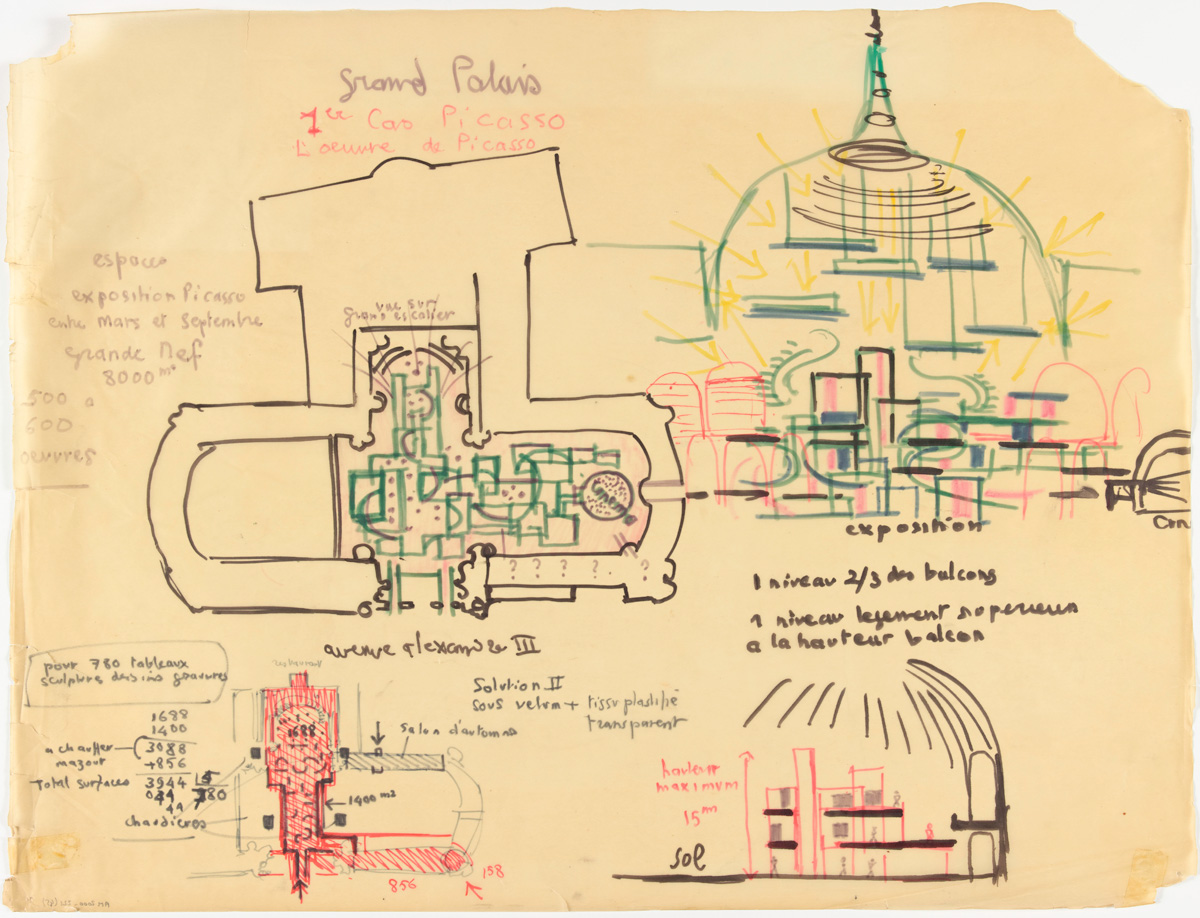 grand Palais
1er Cas Picasso
L'oeuvre de Picasso
espaces
exposition Picasso
entre Mars et Septembre
grande Nef
8000 m²
500 a
600
oeuvres
vue sur
grand escalier
? ? ? ? ?
exposition
1 niveau 2/3 des balcons
1 niveau legement superieur
a la hauteur balcon
avenue alexandre III
pour 780 tableaux
sculpture dessins gravures
1688
1400
a chauffer
3088
mazout
+856
Total surfaces 3944 5
780
44
chaudieres
1688
Solution II
sous velum + tissu plastifié
transparent
Salon d'automne
1400 m²
856
158
hauteur
maximum
15 m
sol